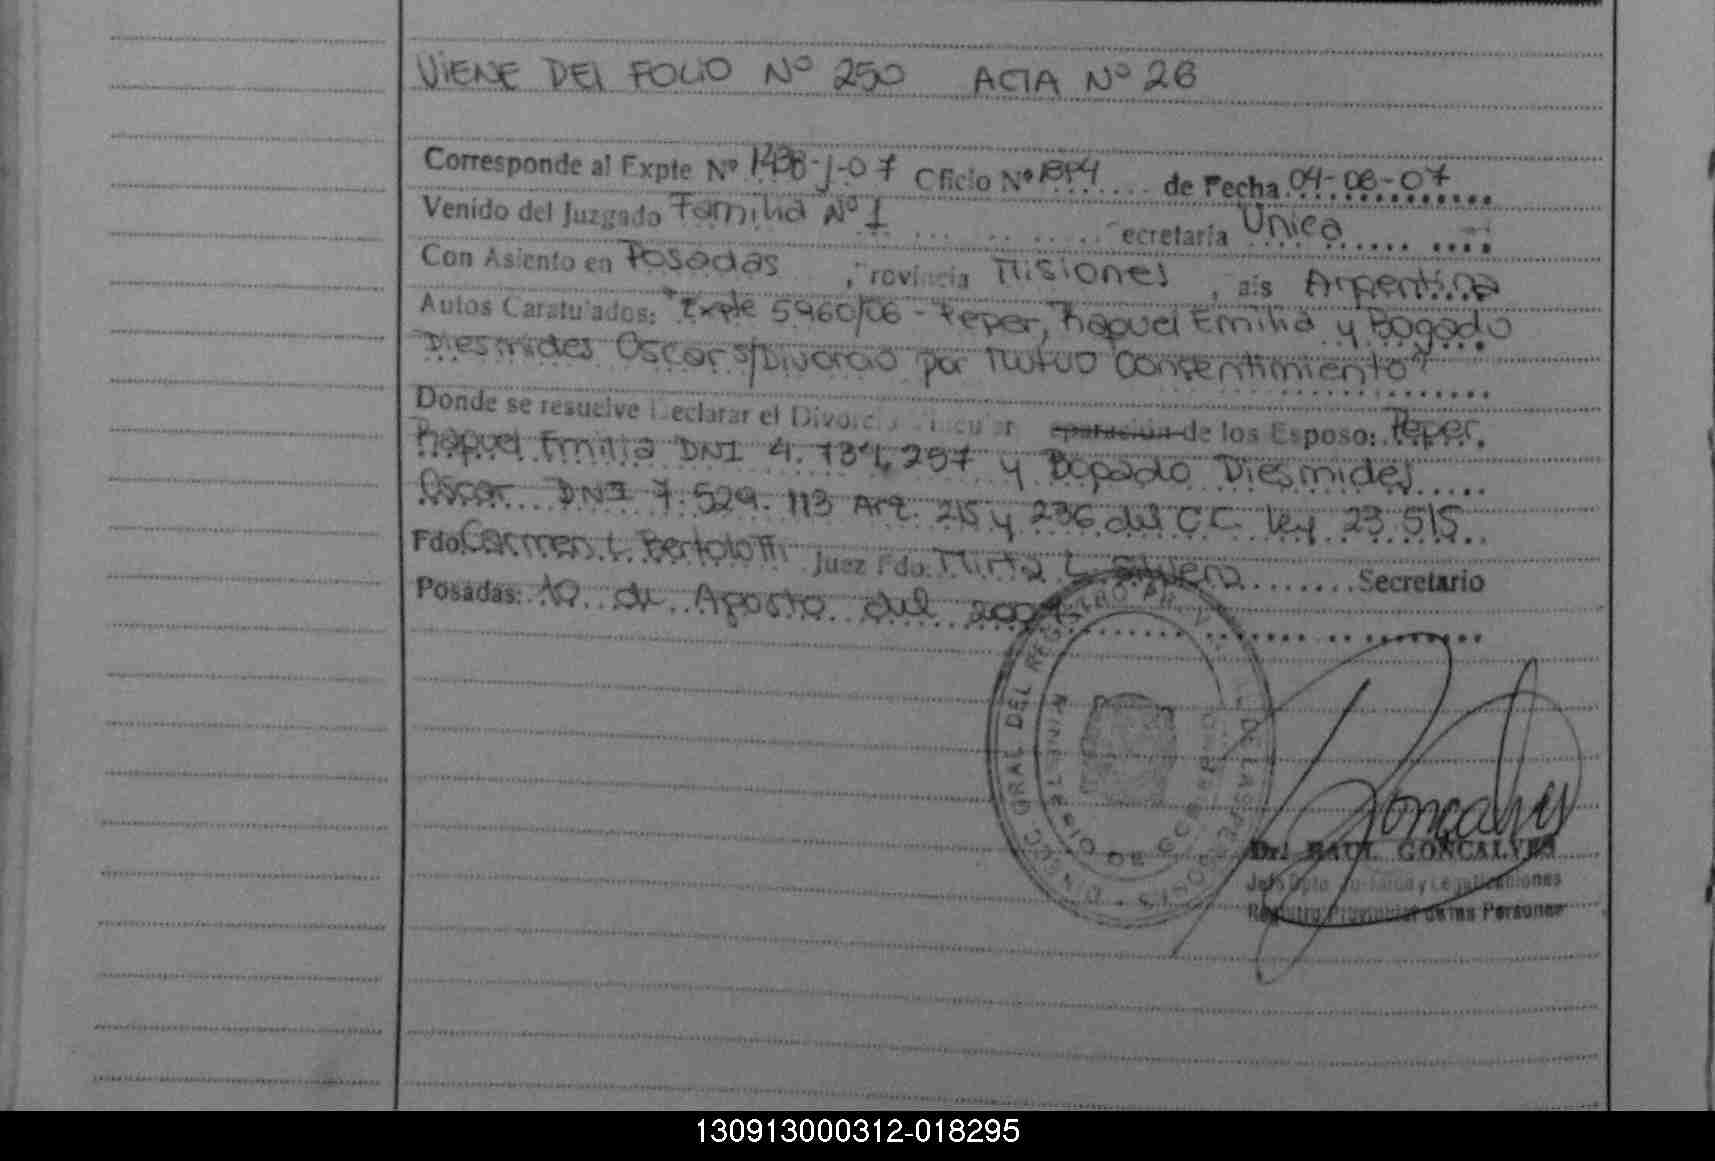 VIENE DEL FOLIO Nº 250 ACTA Nº 26
Corresponde al Expte Nº 1438-J-07 Oficio Nº 1894 de Fecha 04-06-07
Venido del Juzgado Familia Nº 1 Secretaria Unica
Con Asiento en Posadas, Provincia Misiones, País Argentina
Autos Caratulados: "Expte 5960/06 - Peper, Raquel Emilia y Bogado
Diesmides Oscar s/Divorcio por Mutuo Consentimiento"
Donde se resuelve Declarar el Divorcio Vincular eparación de los Esposo: Peper
Raquel Emilia DNI 4.734.257 y Bogado Diesmides
Oscar DNI 7.529.113 Art. 215 y 236 del C.C. Ley 23.515
Fdo Carmen L. Bertolotti Juez Fdo. Mirta L. Secretario
Posadas: 10 de Agosto del 2007
DIRECC GRAL DEL REGISTRO PROV. DE LAS PERSONAS
MINIST. DE GOBIERNO
Dr. RAUL GONCALVES
Jefe Dpto y Legalizaciones
Registro Provincial de las Personas
130913000312-018295